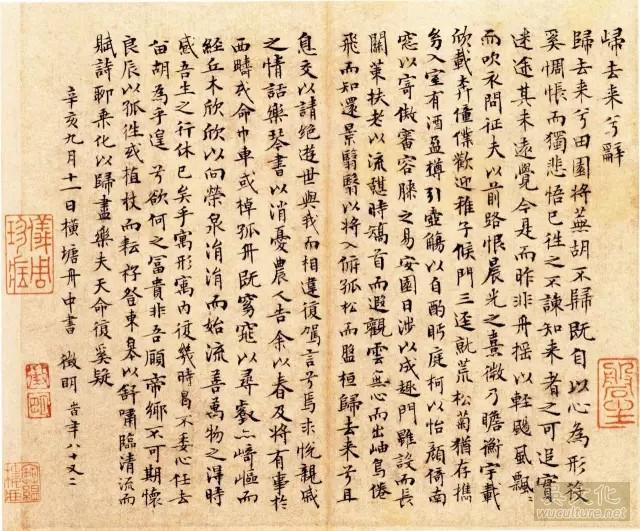 歸去来兮辭
歸去来兮田園將蕪胡不歸既自以心為形役
奚惆悵而獨悲悟已往之不諫知来者之可追寔
迷途其未遠覺今是而昨非舟摇以輕颺風飄
而吹衣問征夫以前路恨晨光之熹微乃瞻衡宇載
欣載奔僮僕歡迎稚子候門三逕就荒松菊猶存攜
幼入室有酒盈樽引壺觴以自酌眄庭柯以怡顏倚南
窓以寄傲審容膝之易安園日涉以成趣門雖設而長
關策扶老以流憩時矯首而遐觀雲無心而出岫鳥倦
飛而知還景翳翳以將入撫孤松而盤桓歸去来兮且
息交以請絕遊世與我而相違復駕言兮焉求悦親戚
之情話樂琴書以消憂農人告余以春及將有事於
西疇或命巾車或棹孤舟既窈窕以尋壑亦崎嶇而
經丘木欣欣以向榮泉涓涓而始流善萬物之得時
感吾生之行休已矣乎寓形寓内復幾時曷不委心任去
留胡為乎遑兮欲何之冨貴非吾願帝鄉不可期懷
良辰以孤往或植杖而耘耔登東皋以舒嘯臨清流而
賦詩聊乘化以歸盡樂夫天命復奚疑
辛亥九月十一日横塘舟中書 徵明 時年八十又二
儀周珍藏
徵明
吴文化
www.wuculture.net